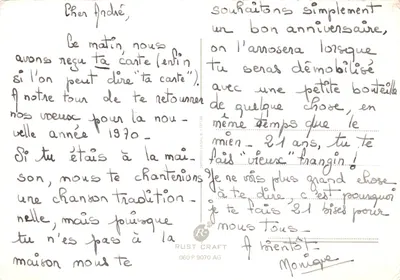 Cher André,
Ce matin, nous
avons reçu ta carte (enfin
si l'on peut dire "ta carte").
A notre tour de te retourner
nos vœux pour la nou-
velle année 1970-
Si tu étais à la mai-
son, nous te chanterions
une chanson tradition-
nelle, mais puisque
tu n'es pas à la
maison nous te
souhaitons simplement
un bon anniversaire,
on l'arrosera lorsque
tu seras démobilisé
avec une petite bouteille
de quelque chose, en
même temps que le
mien - 21 ans, tu te
fais "vieux" frangin!
Je ne vois plus grand chose
à te dire, c'est pourquoi
je te fais 21 bises pour
nous tous -
A bientôt -
Monique
RUST CRAFT